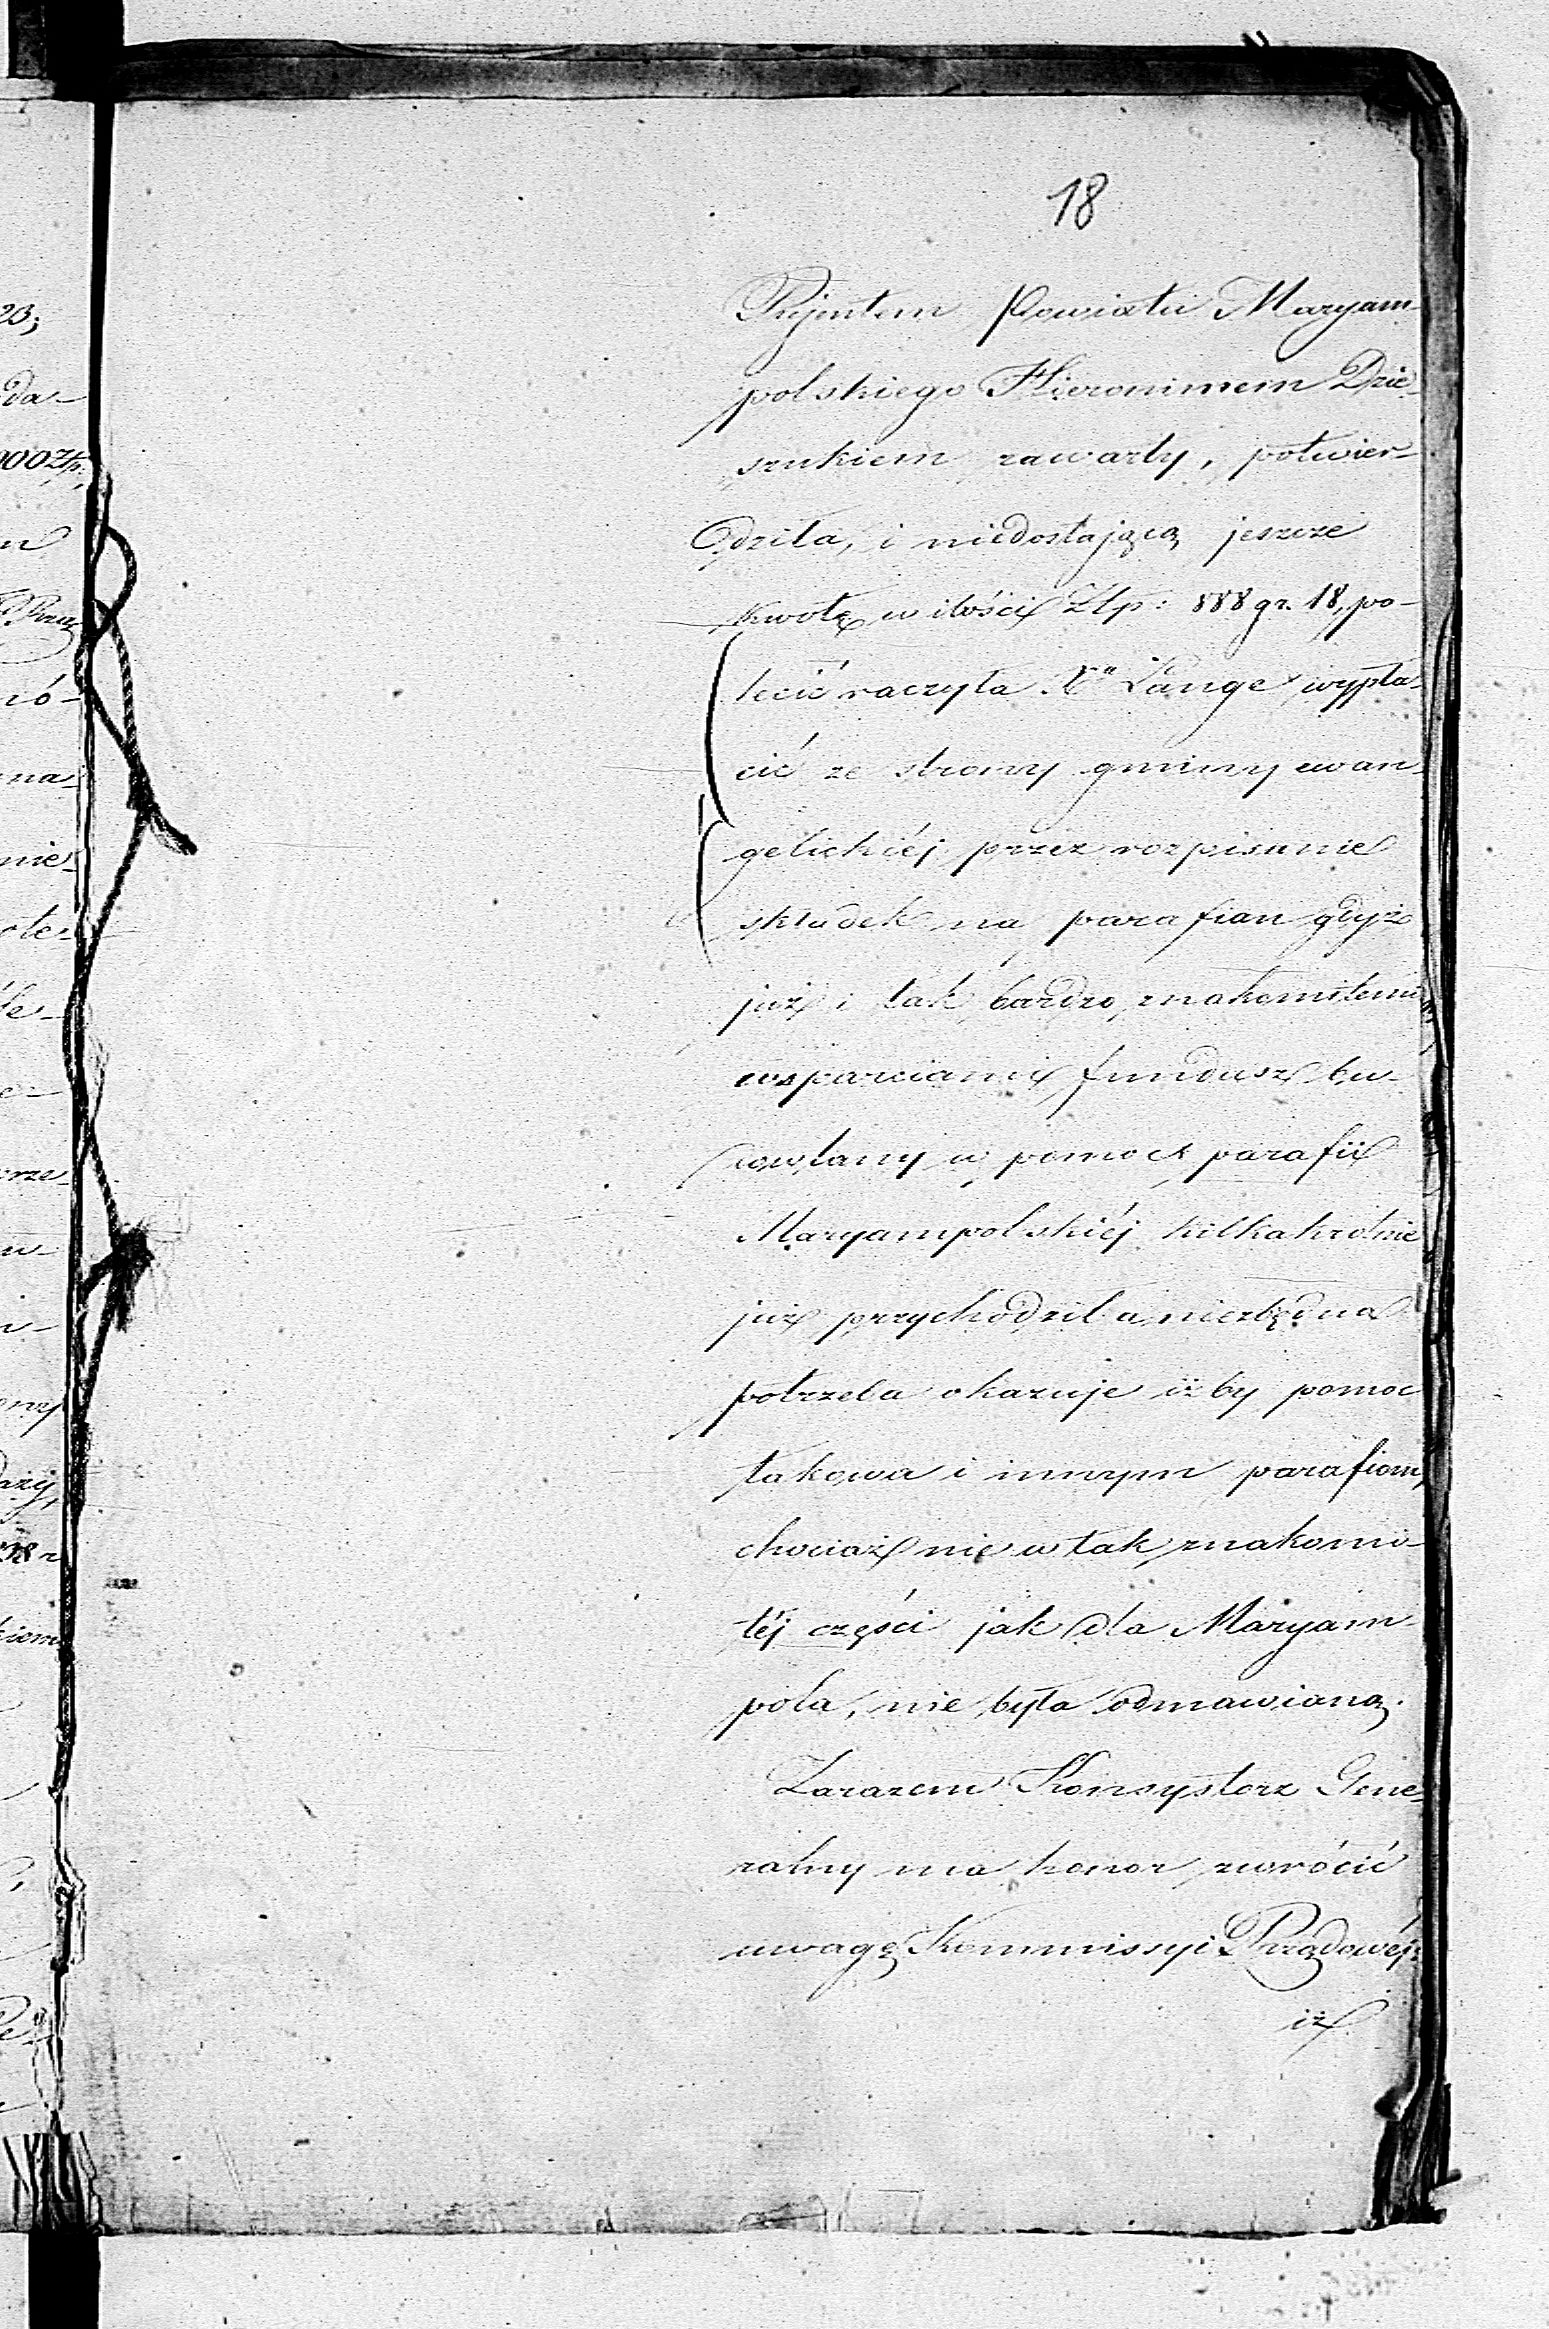 18
Rejentem Powiatu Maryam-
polskiego Hieronimem Dzie-
szukiem zawarty, potwier-
dziła, i niedostającą jeszcze
kwotę w ilości Złp: 888 gr. 18, po-
lecić raczyła Xu Lange wypła-
cić ze strony gminy ewan-
gelickiéj przez rozpisanie
składek na parafian gdyż
już i tak bardzo znakomitemi
wsparciami fundusz bu-
dowlany w pomoc parafii
Maryampolskiéj kilkakrotnie
już przychodził a niezbędna
potrzeba okazuje iżby pomoc
takowa i innym parafiom,
chociaż nie w tak znakomi-
téj części jak dla Maryam-
pola, nie była odmawianą.
Zarazem Konsystorz Gene-
ralny ma honor zwrócić
uwagę Kommissyi Rządowéj,
iż
23;
da-
000 Złp:
ró-
na
nie
ote-
le-
e-
rze
w-
ony
38 r